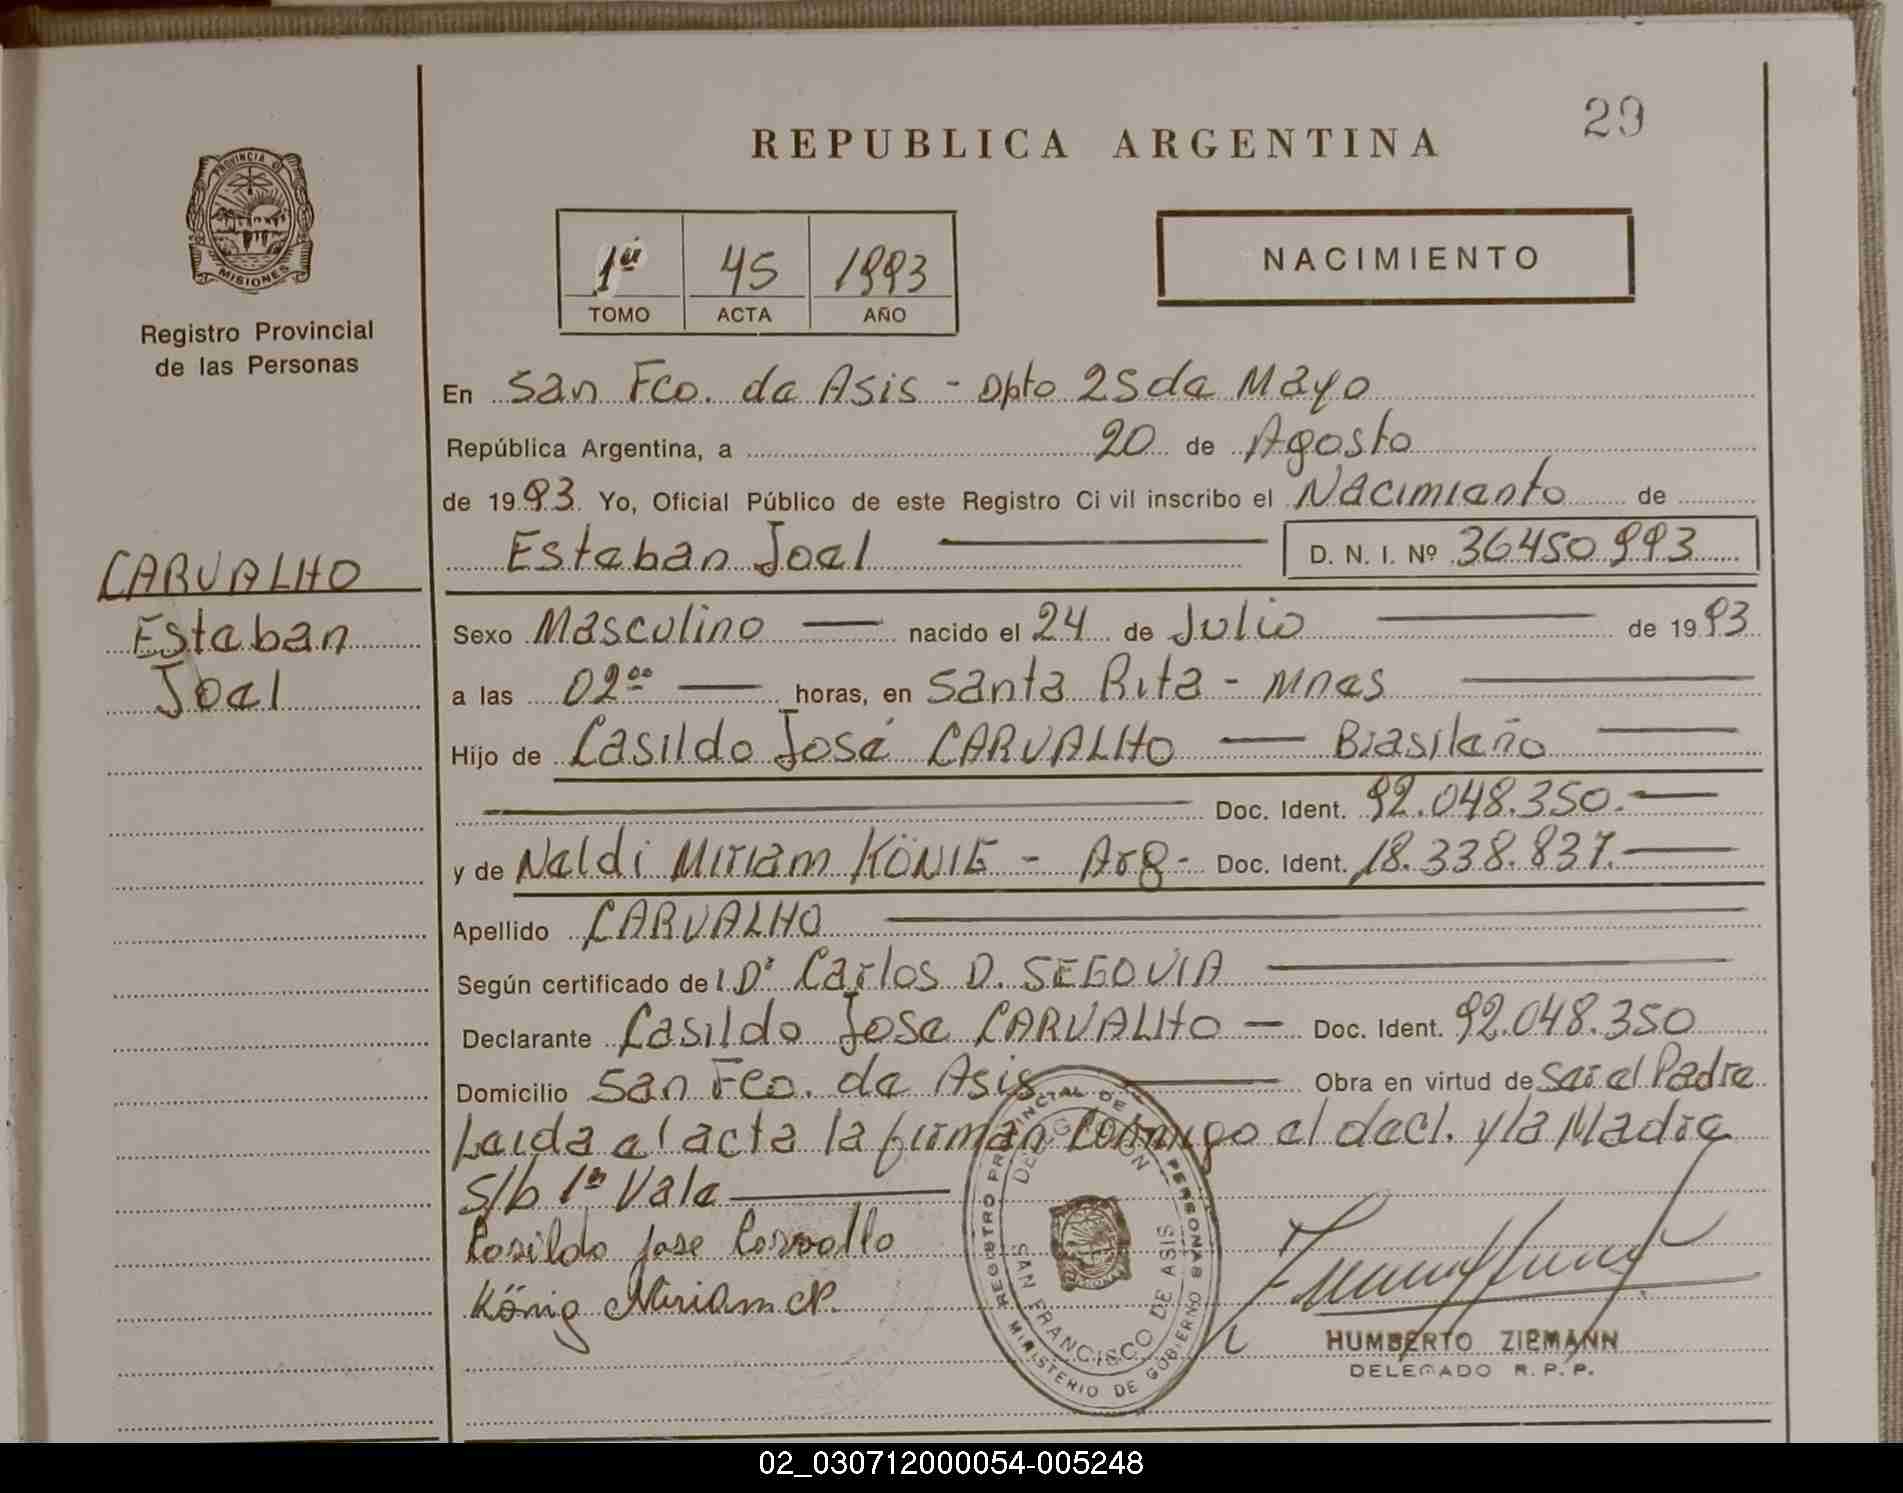 29
REPUBLICA ARGENTINA
PROVINCIA DE
MISIONES
Registro Provincial
de las Personas
1º 45 1993
TOMO ACTA AÑO
NACIMIENTO
En San Fco. de Asis - Dpto 25 de Mayo
República Argentina, a 20 de Agosto
de 1993 Yo, Oficial Público de este Registro Civil inscribo el Nacimiento de
Esteban Joel D. N. I. Nº 36450993
CARVALHO
Esteban
Joel
Sexo Masculino nacido el 24 de Julio de 1993
a las 02⁰⁰ horas, en Santa Rita - Mnes
Hijo de Casildo José CARVALHO Brasileño
Doc. Ident. 92.048.350.
y de Neldi Miriam KÖNIG - Arg - Doc. Ident. 18.338.837.
Apellido CARVALHO
Según certificado de l Dr Carlos D. SEGOVIA
Declarante Casildo Jose CARVALHO Doc. Ident. 92.048.350
Domicilio San Fco. de Asis Obra en virtud de Ser el Padre
Leida el acta la firman conmigo el decl. y la Madre
S/b 1º Vale
Casildo jose Carvallo
König Miriam N.
REGISTRO PROVINCIAL DE PERSONAS
MINISTERIO DE GOBIERNO
DELEGACION
SAN FRANCISCO DE ASIS
HUMBERTO ZIEMANN
DELEGADO R. P. P.
02_030712000054-005248